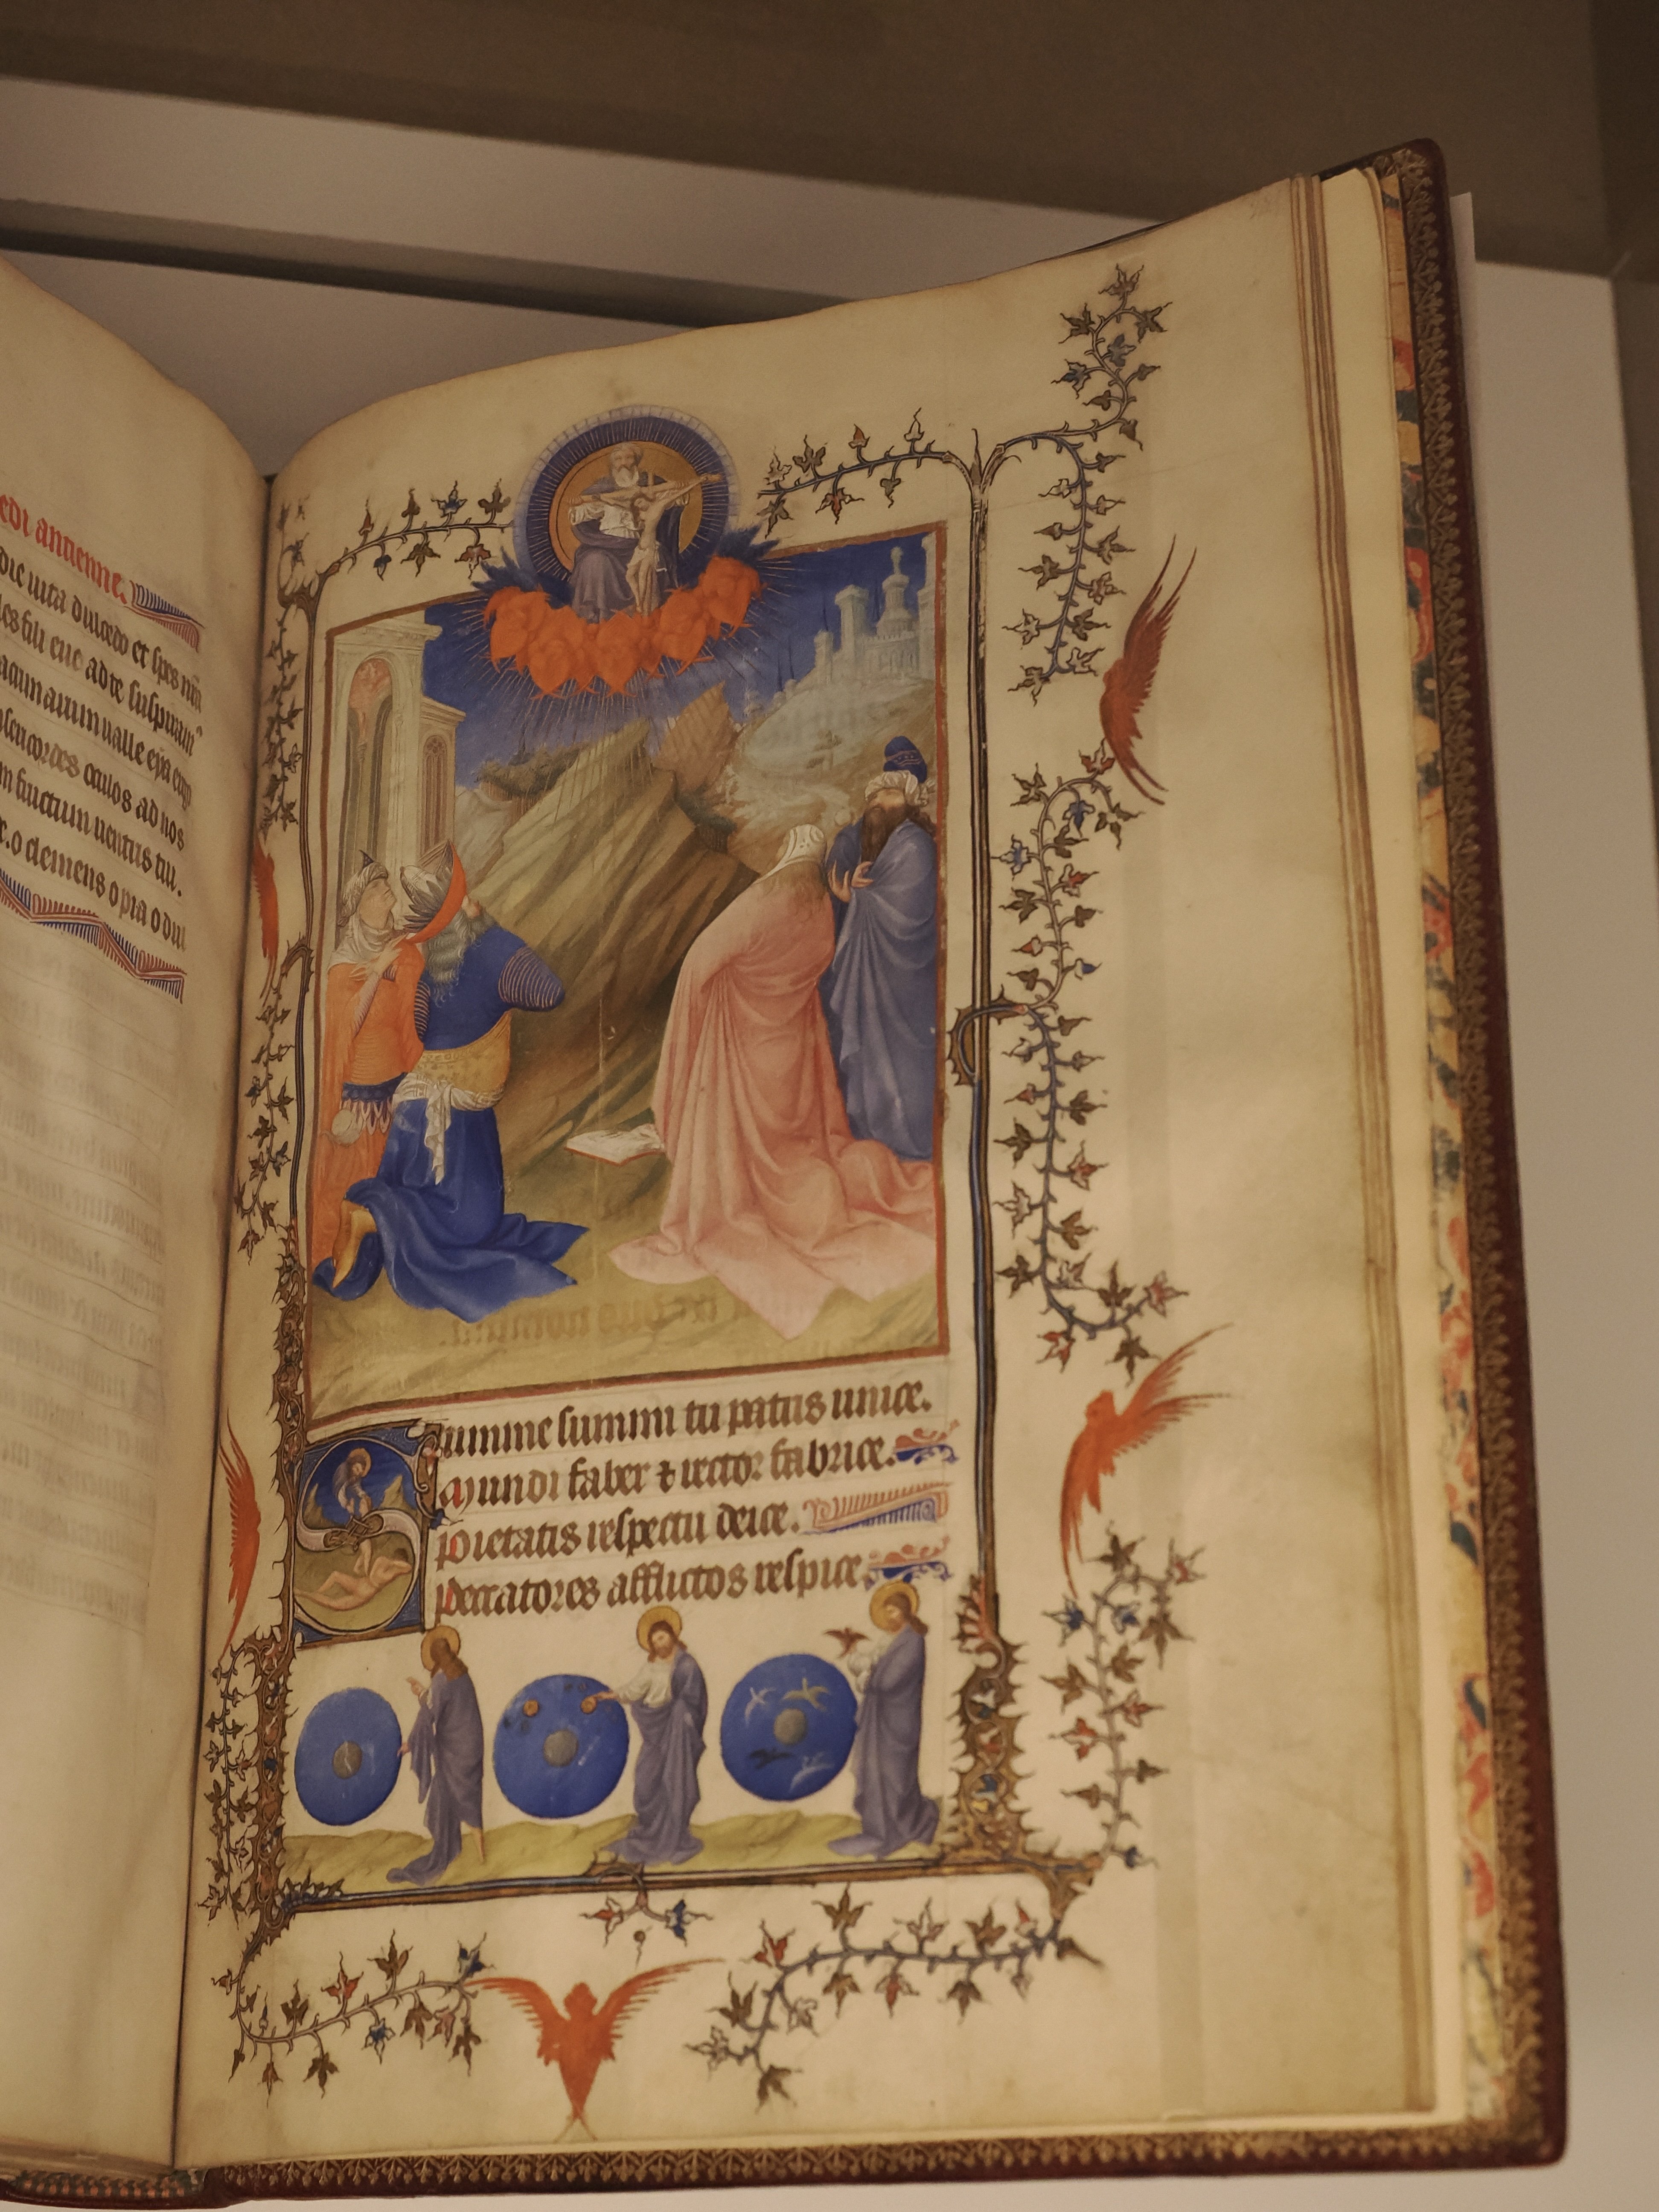 edi ancienne.
dic uita dulcedo et spes nrã
les filii eue ad te suspiram⁹
lacrimarum ualle eya ergo
sericordes oculos ad nos
m fructum uentris tui.
o clemens o pia o dul
Summe summi tu patris unice.
Mundi faber ⁊ rector fabrice.
Pietatis respectu deice.
Peccatores afflictos respice.